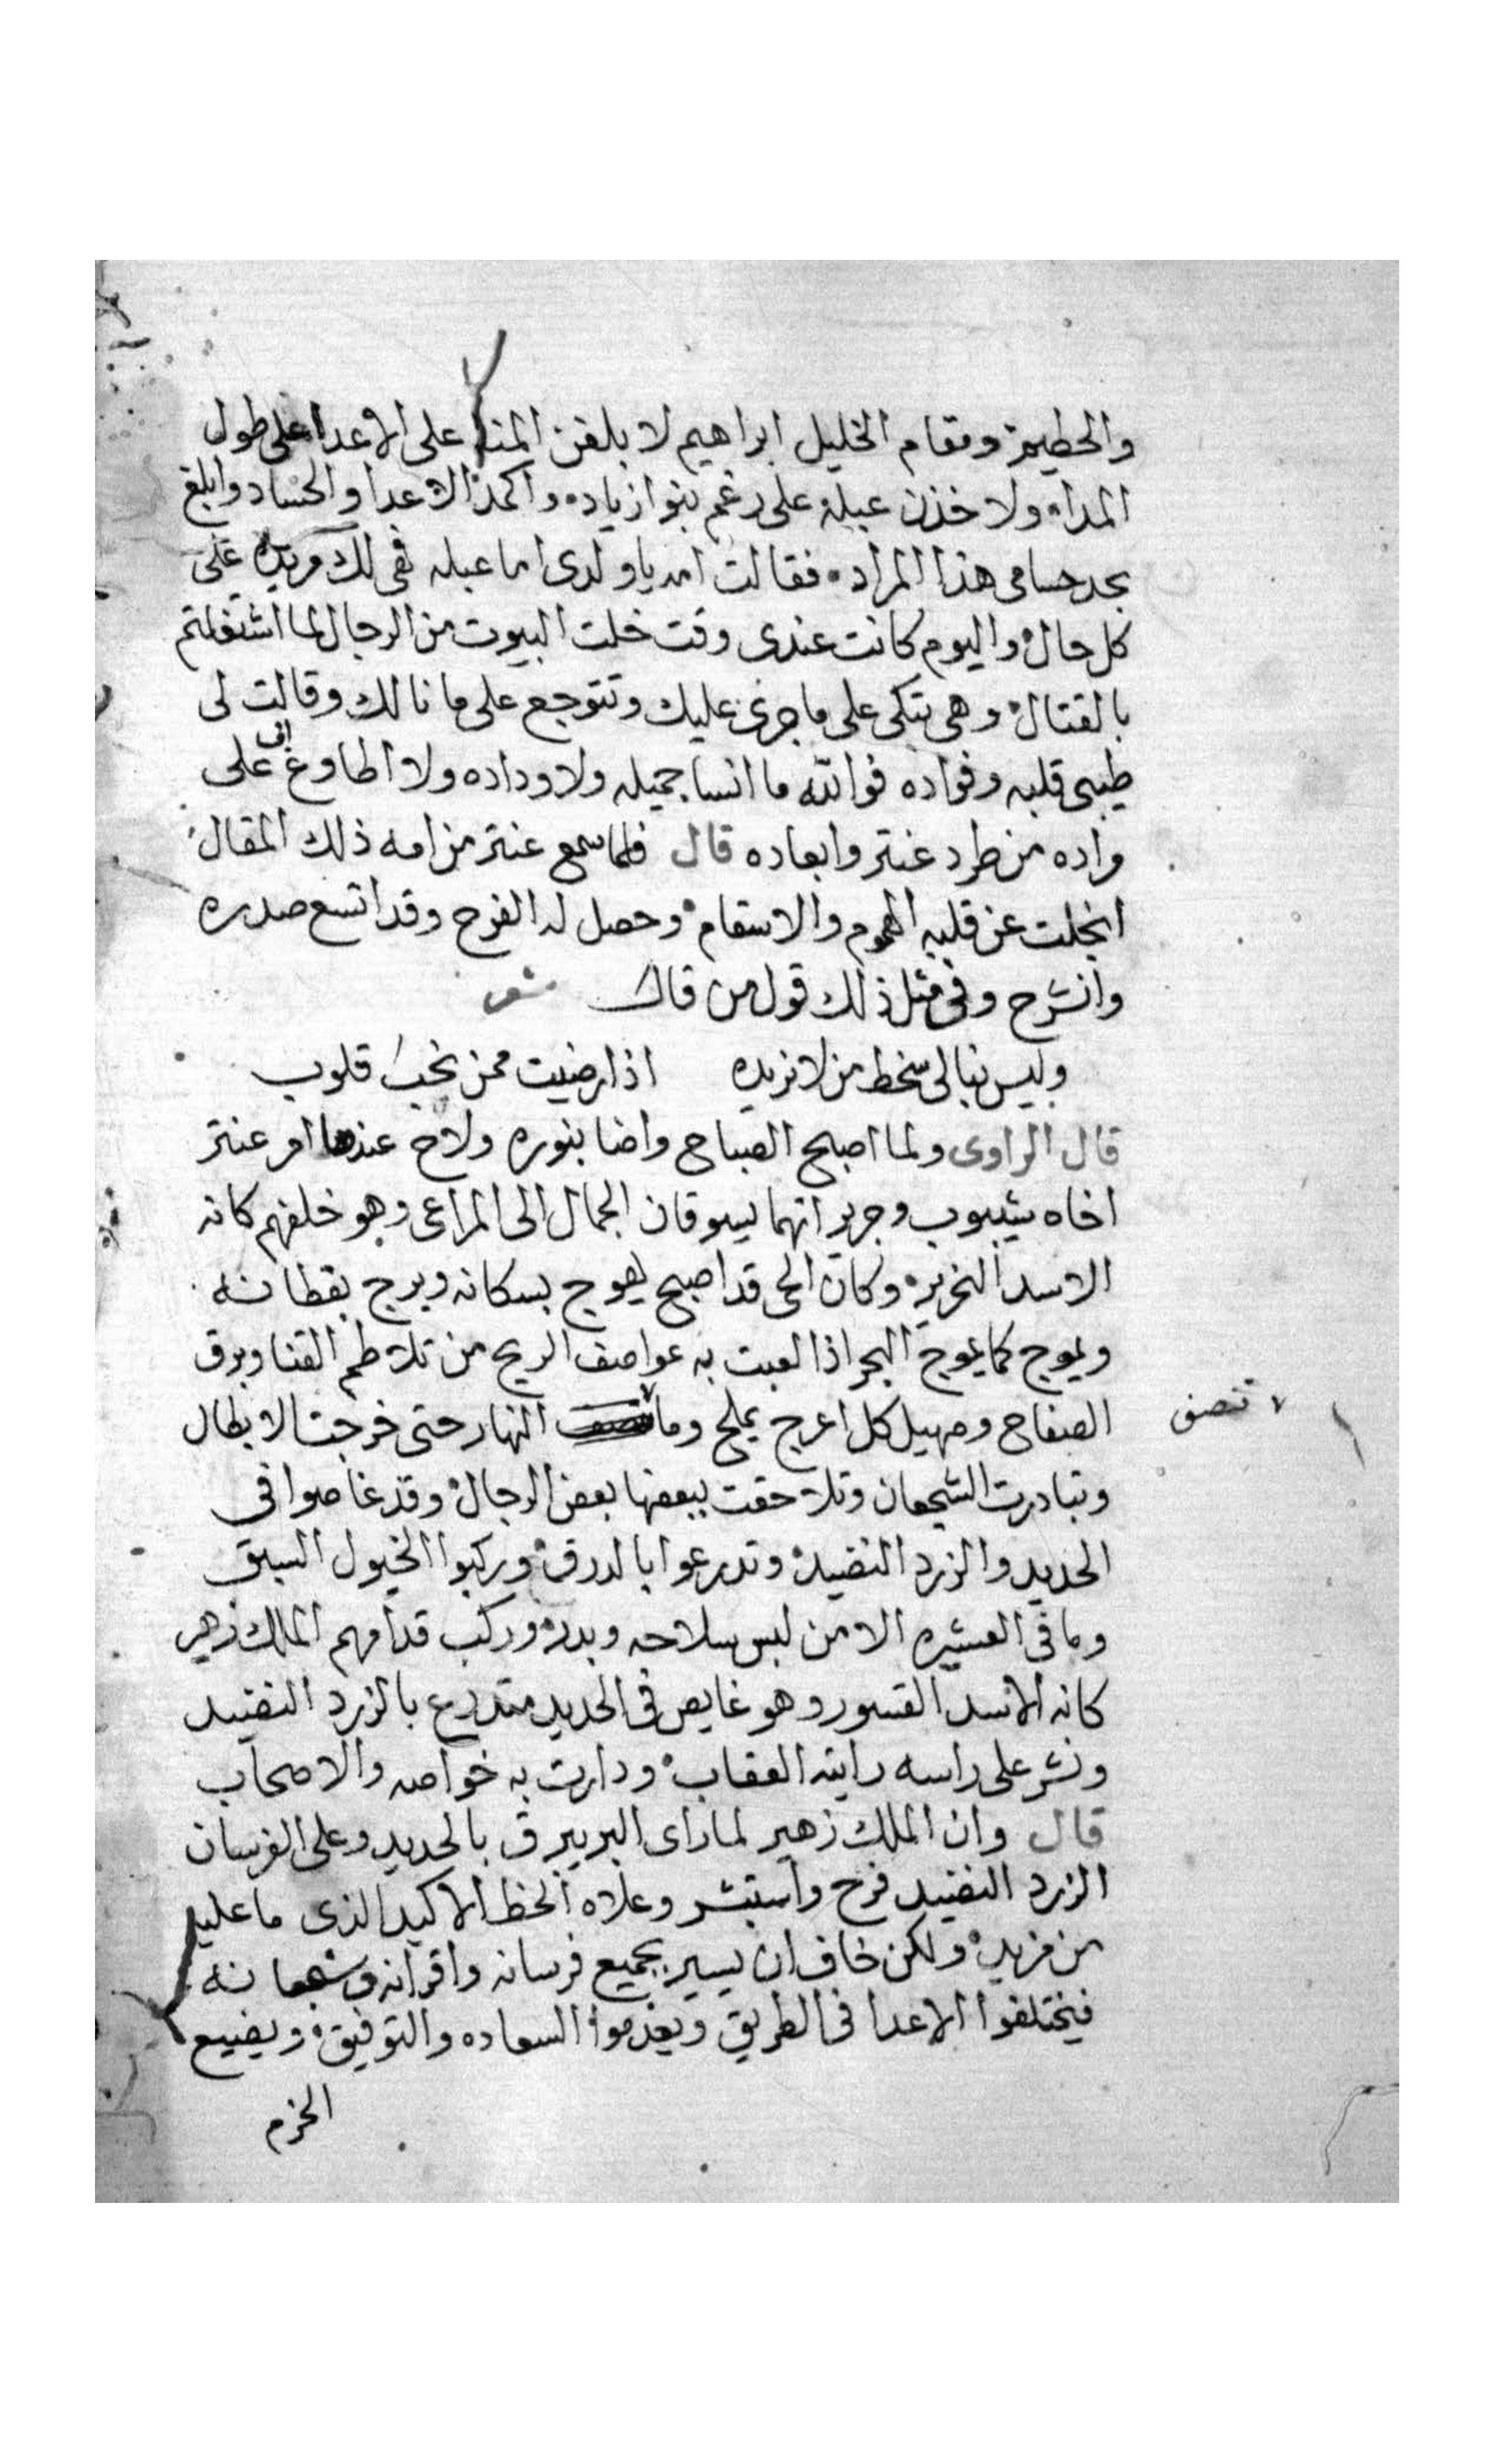 والحطيم ومقام الخليل ابراهيم لا بلغن المنا على الاعدا على طول
المدا ولا خذن عبله على رغم بنوا زياد واكمد الاعدا والحساد وابلغ
بحد حسامى هذا المراد فقالت امه ياولدى اما عبله فهى لك مريده على
كل حال واليوم كانت عندى وقت خلت البيوت من الرجال لما اشتغلتم
بالقتال وهى تبكى على ما جرى عليك وتتوجع على ما نالك وقالت لى
طيبى قلبه وفواده فوالله ما انسا جميله ولا وداده ولا اطاوع ابى على
مراده من طرد عنتر وابعاده قال فلما سمع عنتر من امه ذلك المقال
انجلت عن قلبه الهموم والاسقام وحصل له الفرح وقد اتسع صدره
وانشرح وفى مثل ذلك قول من قال شعر
وليس نبالى سخط من لا نريده اذا رضيت ممن نحب قلوب
قال الراوى ولما اصبح الصباح واضا بنوره ولاح عندها امر عنتر
اخاه شيبوب وجرير انهما يسوقان الجمال الى المراعى وهو خلفهم كانه
الاسد النحرير وكان الحى قد اصبح يهوج بسكانه ويرج بقطانه
ويموج كما يموج البحر اذا لعبت به عواصف الريح من تلاطم القنا وبرق
الصفاح وصهيل كل اعرج يملح وما النهار حتى خرجت الابطال
تنصف
وتبادرت الشجعان وتلاحقت ببعضها بعض الرجال وقد غاصوا فى
الحديد والزرد النضيد وتدرعوا بالدرق وركبوا الخيول السبق
وما فى العشيره الا من لبس سلاحه وبدر وركب قدامهم الملك زهير
كانه الاسد القسور وهو غايص فى الحديد متدرع بالزرد النضيد
ونشر على راسه رايته العقاب ودارت به خواصه والاصحاب
قال وان الملك زهير لما راى البر يبرق بالحديد وعلى الفرسان
الزرد النضيد فرح واستبشر وعلاه الحظ الاكيد الذى ما عليه
من مزيد ولكن خاف ان يسير بجميع فرسانه واقرانه وشجعانه
فيختلفوا الاعدا فى الطريق ويعدموا السعاده والتوفيق ويضيع
الحزم